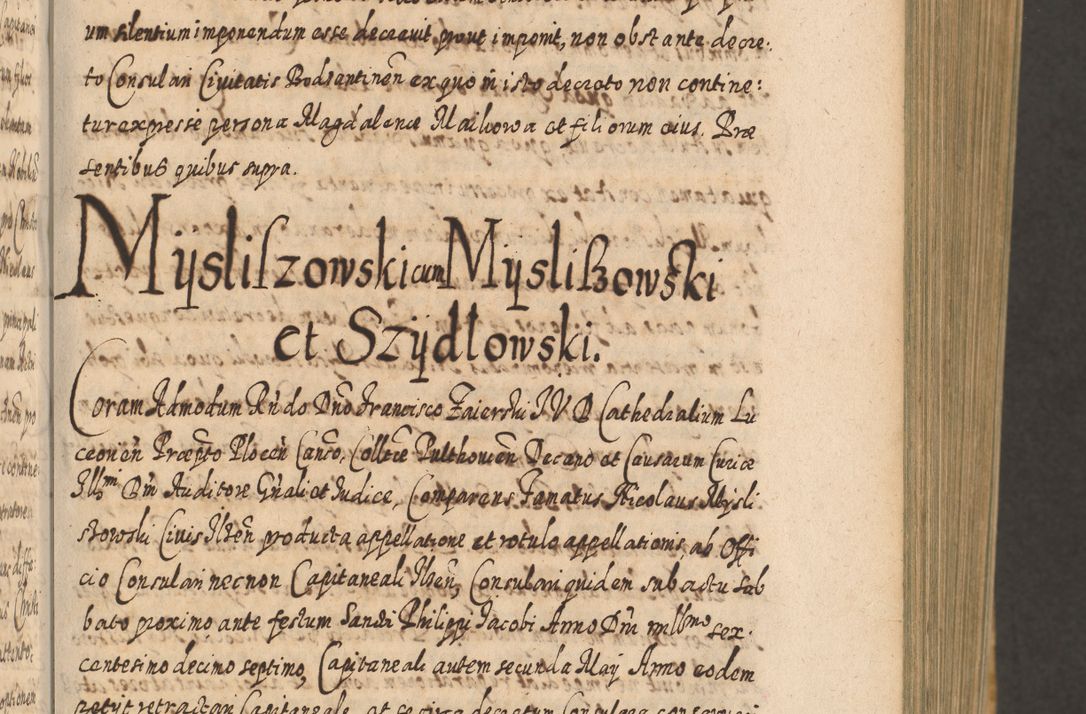 um silentium imponendum esse decrevit, prout imponit, non obstante decre:
to Consulari Civitatis Bodzantinen̄ ex quo in isto decreto non contine:
tur expresse persona Magdalenæ Maikowa et filiorum eius. Præ
sentibus quibus supra.
Mysliſzowski cum Mysliſzowski
et Szydłowski.
Coram Admodum Rn̄do Dn̄o Francisco Zaierski I V D Cathedralium Lu
ceoren̄ Præpto Plocen̄ Canco, Colltæ Pulthovien̄ Decano et Causarum Curiæ
Illmi Dn̄i Auditore Gn̄ali et Iudice, Comparens Famatus Nicolaus Mysli
szowski Civis Ilzen̄ producta appellatione et rotulo appellationis, ab Offi
cio Consulari necnon Capitaneali Ilzen̄, Consulari quidem sub actu Sab
bato proximo ante festum Sancti Philippi Iacobi Anno Dn̄i millmo sex.
centesimo decimo septimo, Capitaneali autem secunda Maij Anno eodem
petijt retractari Capitaneale, et se circa decretum Consulare conservari